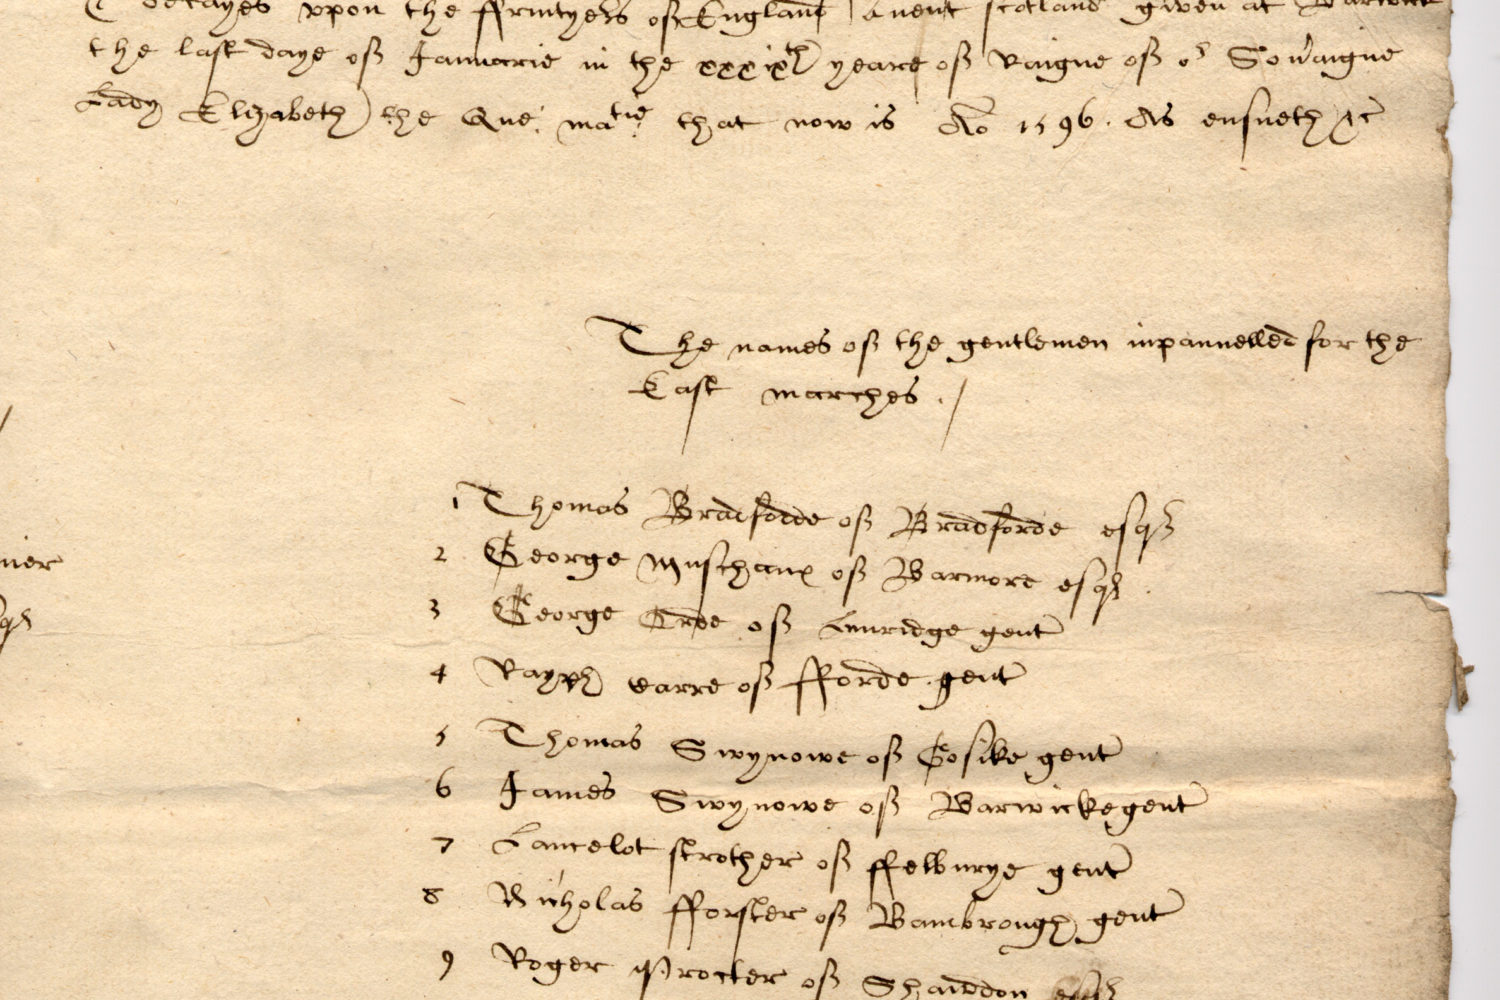 decayes vpon the ffrontyers of England anent scotland given at Barwick
the last daye of Januarie in the xxxixth yeare of Raigne of or Sovraigne
Lady Elizabeth the Que: matie that now is Ao 1596. As ensueth &c
The names of the gentlemen inpannelled for the
East marches ./
1 Thomas Bradforde of Bradforde esqr
2 George Muschamp of Barmore esqr
nier
3 George Orde of gent
esqr
4 Rayph Carre of fforde gent
5 Thomas Swynowe of gent
6 James Swynowe of Barwicke gent
7 Lancelot strother of gent
8 Nicholas fforster of Bambrough gent
9 Roger Procter of Shawdon esqr